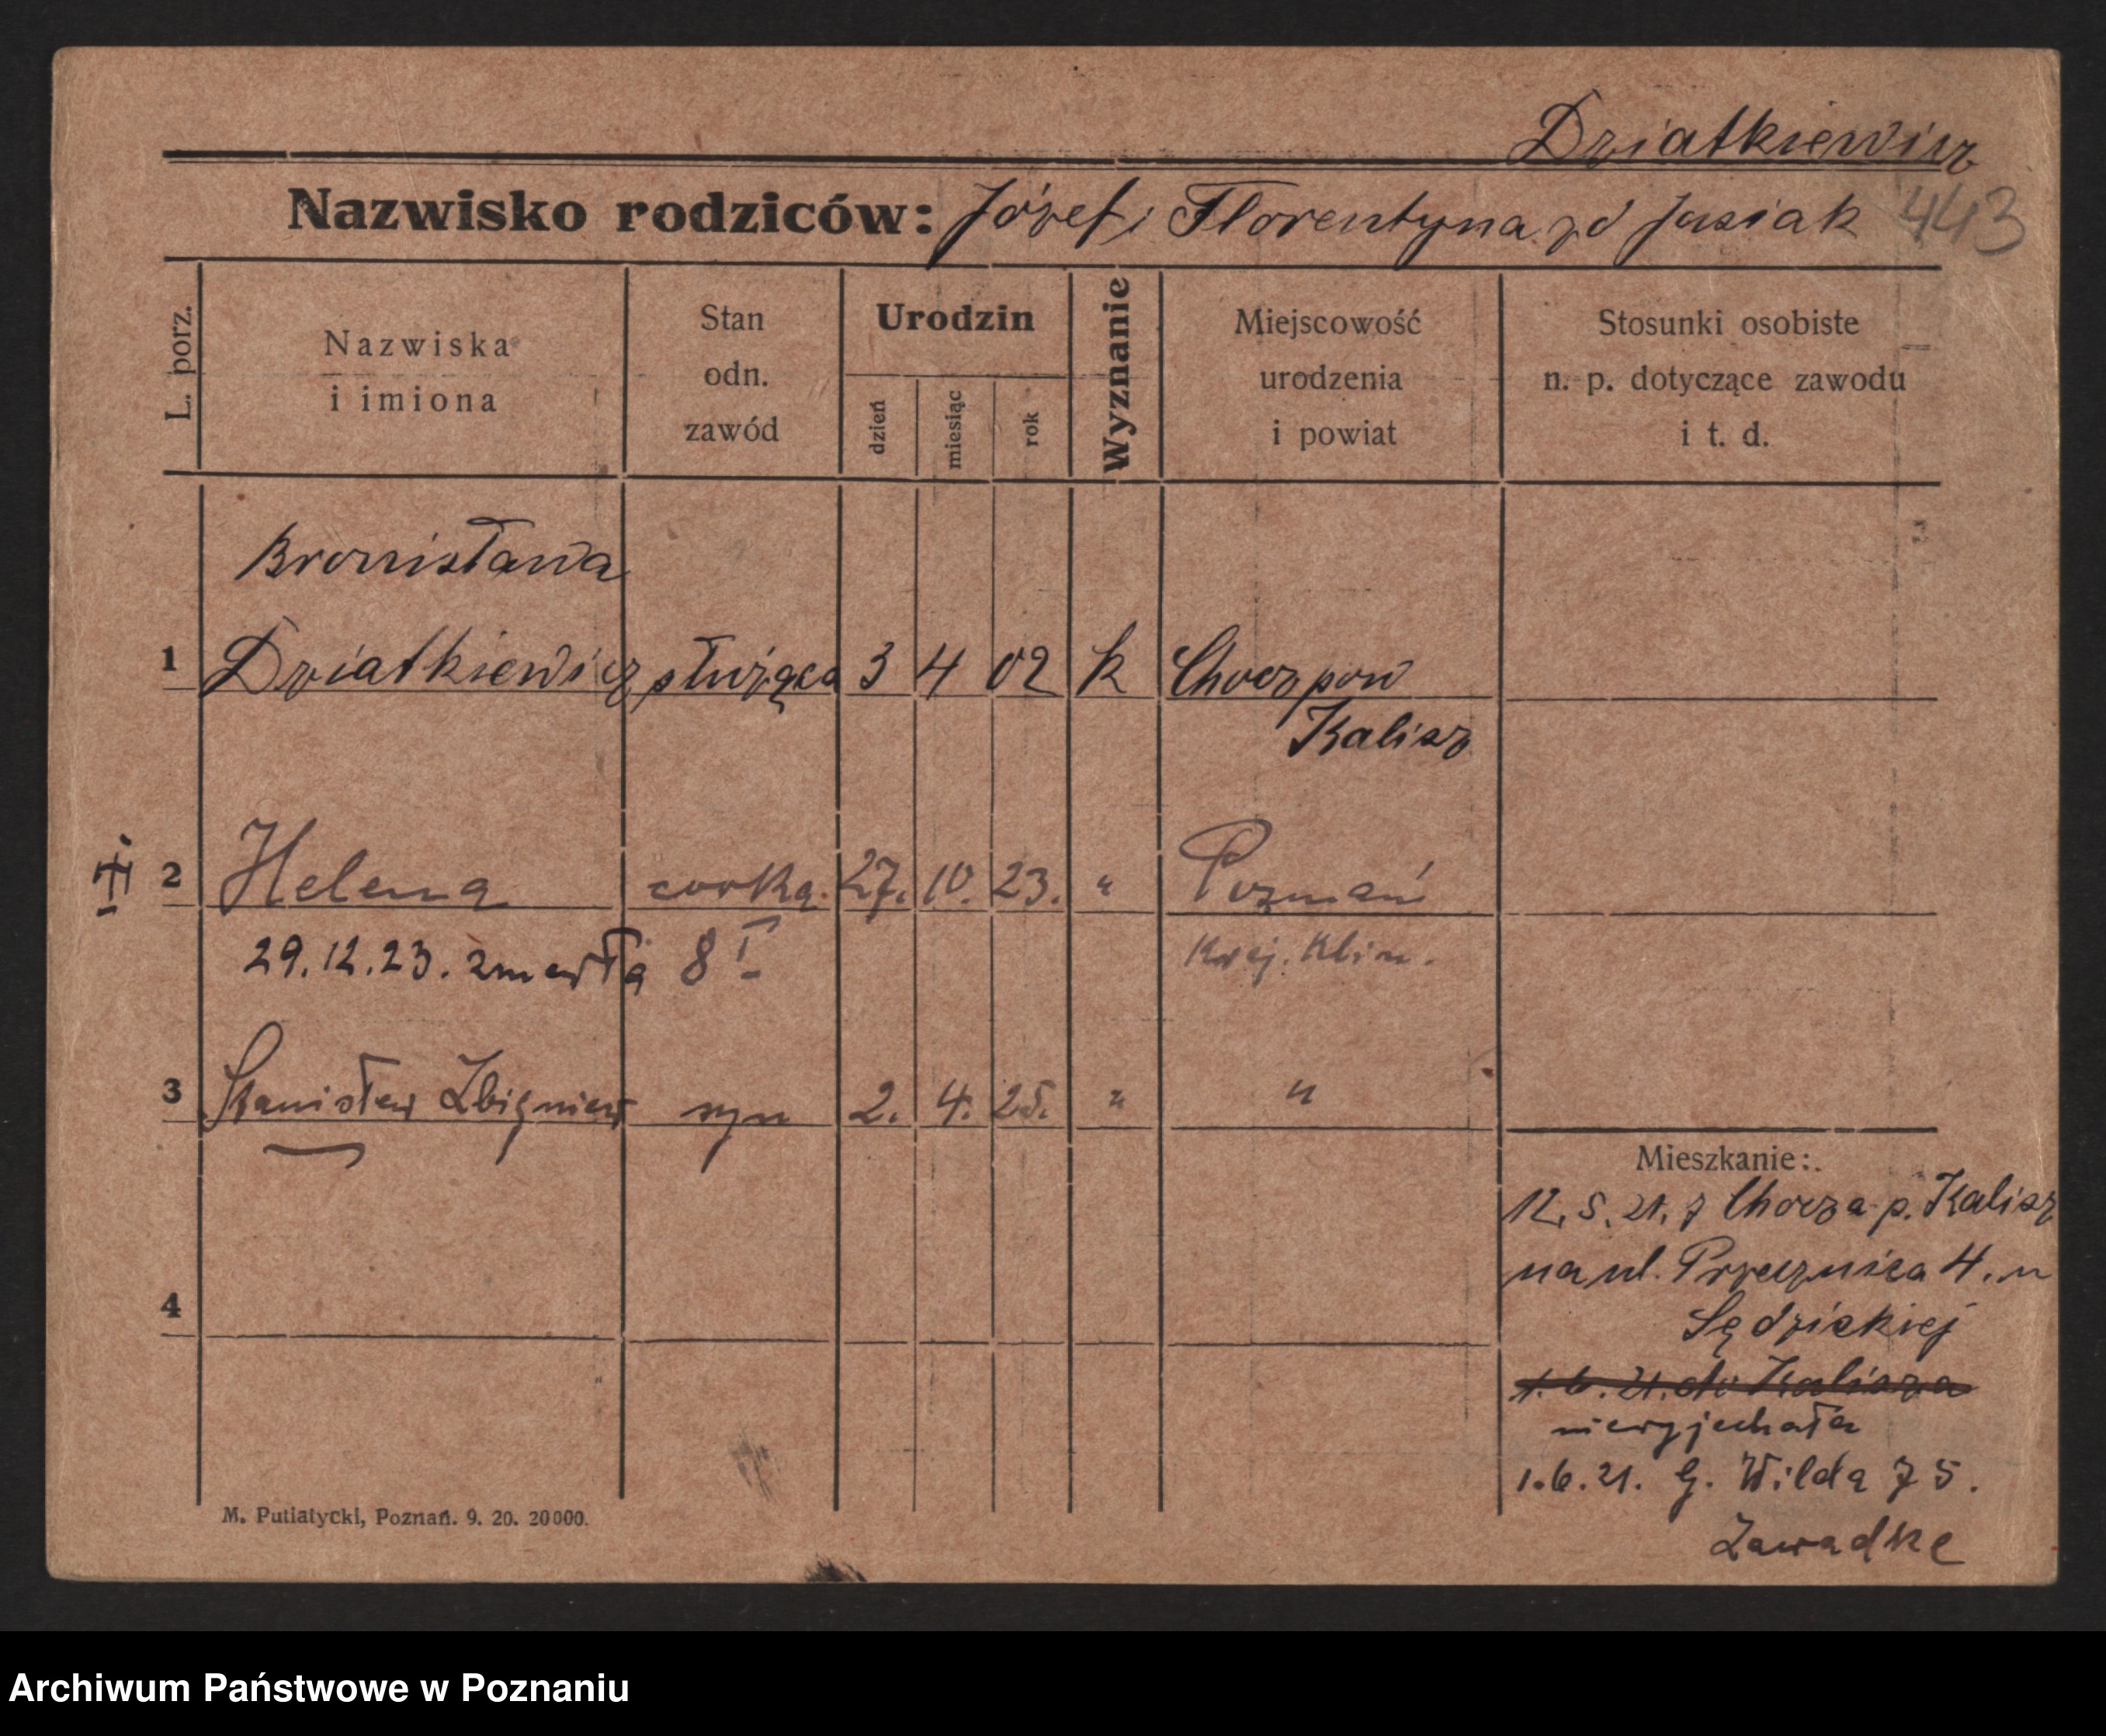 Dziatkiewicz
Nazwisko rodziców: Józef i Florentyna zd Jasiak 443
L. porz.
Nazwiska i imiona
Stan odn. zawód
Urodzin
dzień
miesiąc
rok
Wyznanie
Miejscowość urodzenia i powiat
Stosunki osobiste n. p. dotyczące zawodu i t. d.
Bronisława
1 Dziatkiewicz służąca 3 4 02 k Chocz pow
Kalisz
2 Helena corka. 27. 10. 23. " Poznań
29.12.23. zmarła 8 I Kraj. Klin.
3 Stanisław Zbigniew syn 2. 4. 25. " "
Mieszkanie:
12.5.21. z Chocza p. Kalisz
na ul. Przecznica 4. u
Sędziskiej
1.6.21. do Kalisza
niewyjechała
1.6.21. G. Wilda 75.
Zawadke
4
M. Putiatycki, Poznań. 9. 20. 20000.
Archiwum Państwowe w Poznaniu